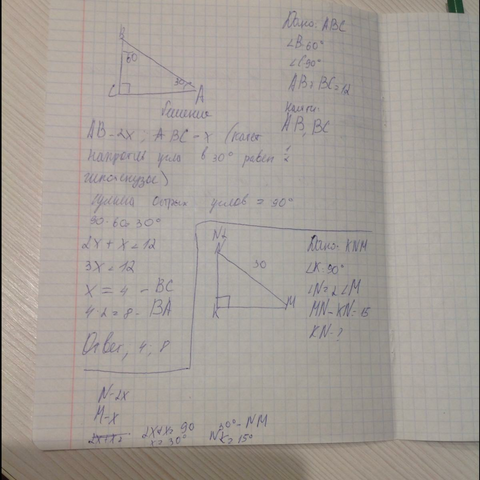 B
60
30°
C
A
Дано: ABC
∠B 60°
∠C 90°
AB + BC = 12
Найти:
AB, BC
Решение
AB - 2x, A BC - x (катет
напротив угла в 30° равен
гипотенузы)
сумма острых углов = 90°
90-60=30°
2x + x = 12
3x = 12
x = 4 - BC
4·2 = 8 - BA
Ответ, 4, 8
N2
N
30
K
M
Дано: KNM
∠K 90°
∠N = 2∠M
MN - KN = 15
KN - ?
N - 2x
M - x
2x+x=
2x+x= 90
x = 30°
30° - NM
NK = 15